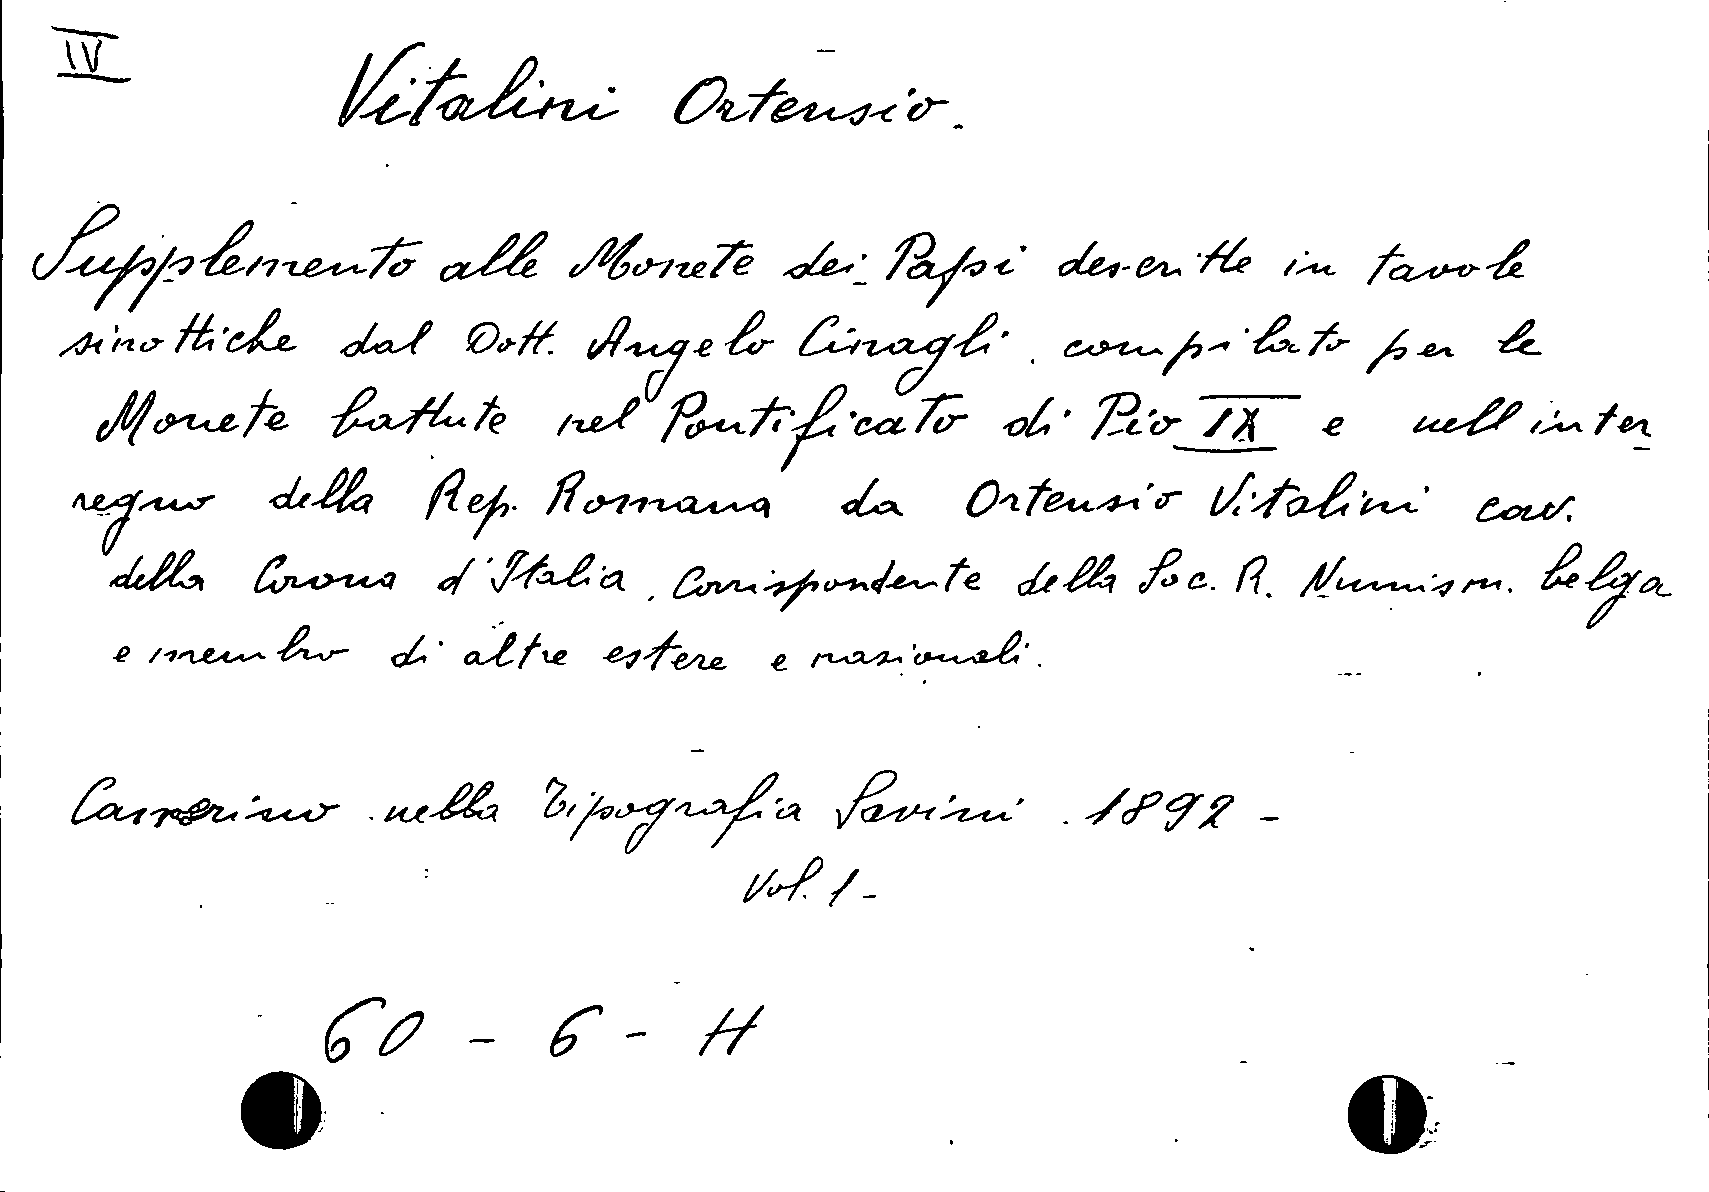 IV
Vitalini Ortensio.
Supplemento alle Monete dei Papi descritte in tavole
sinottiche dal Dott. Angelo Cinagli. compilato per le
Monete battute nel Pontificato di Pio IX e nell inter
regno della Rep. Romana da Ortensio Vitalini cav.
della Corona d'Italia. Corrispondente della Soc. R. Numism. belga
e membro di altre estere e nasionali.
Camerino nella Tipografia Savini. 1892 -
Vol. 1 -
60 - 6 - H